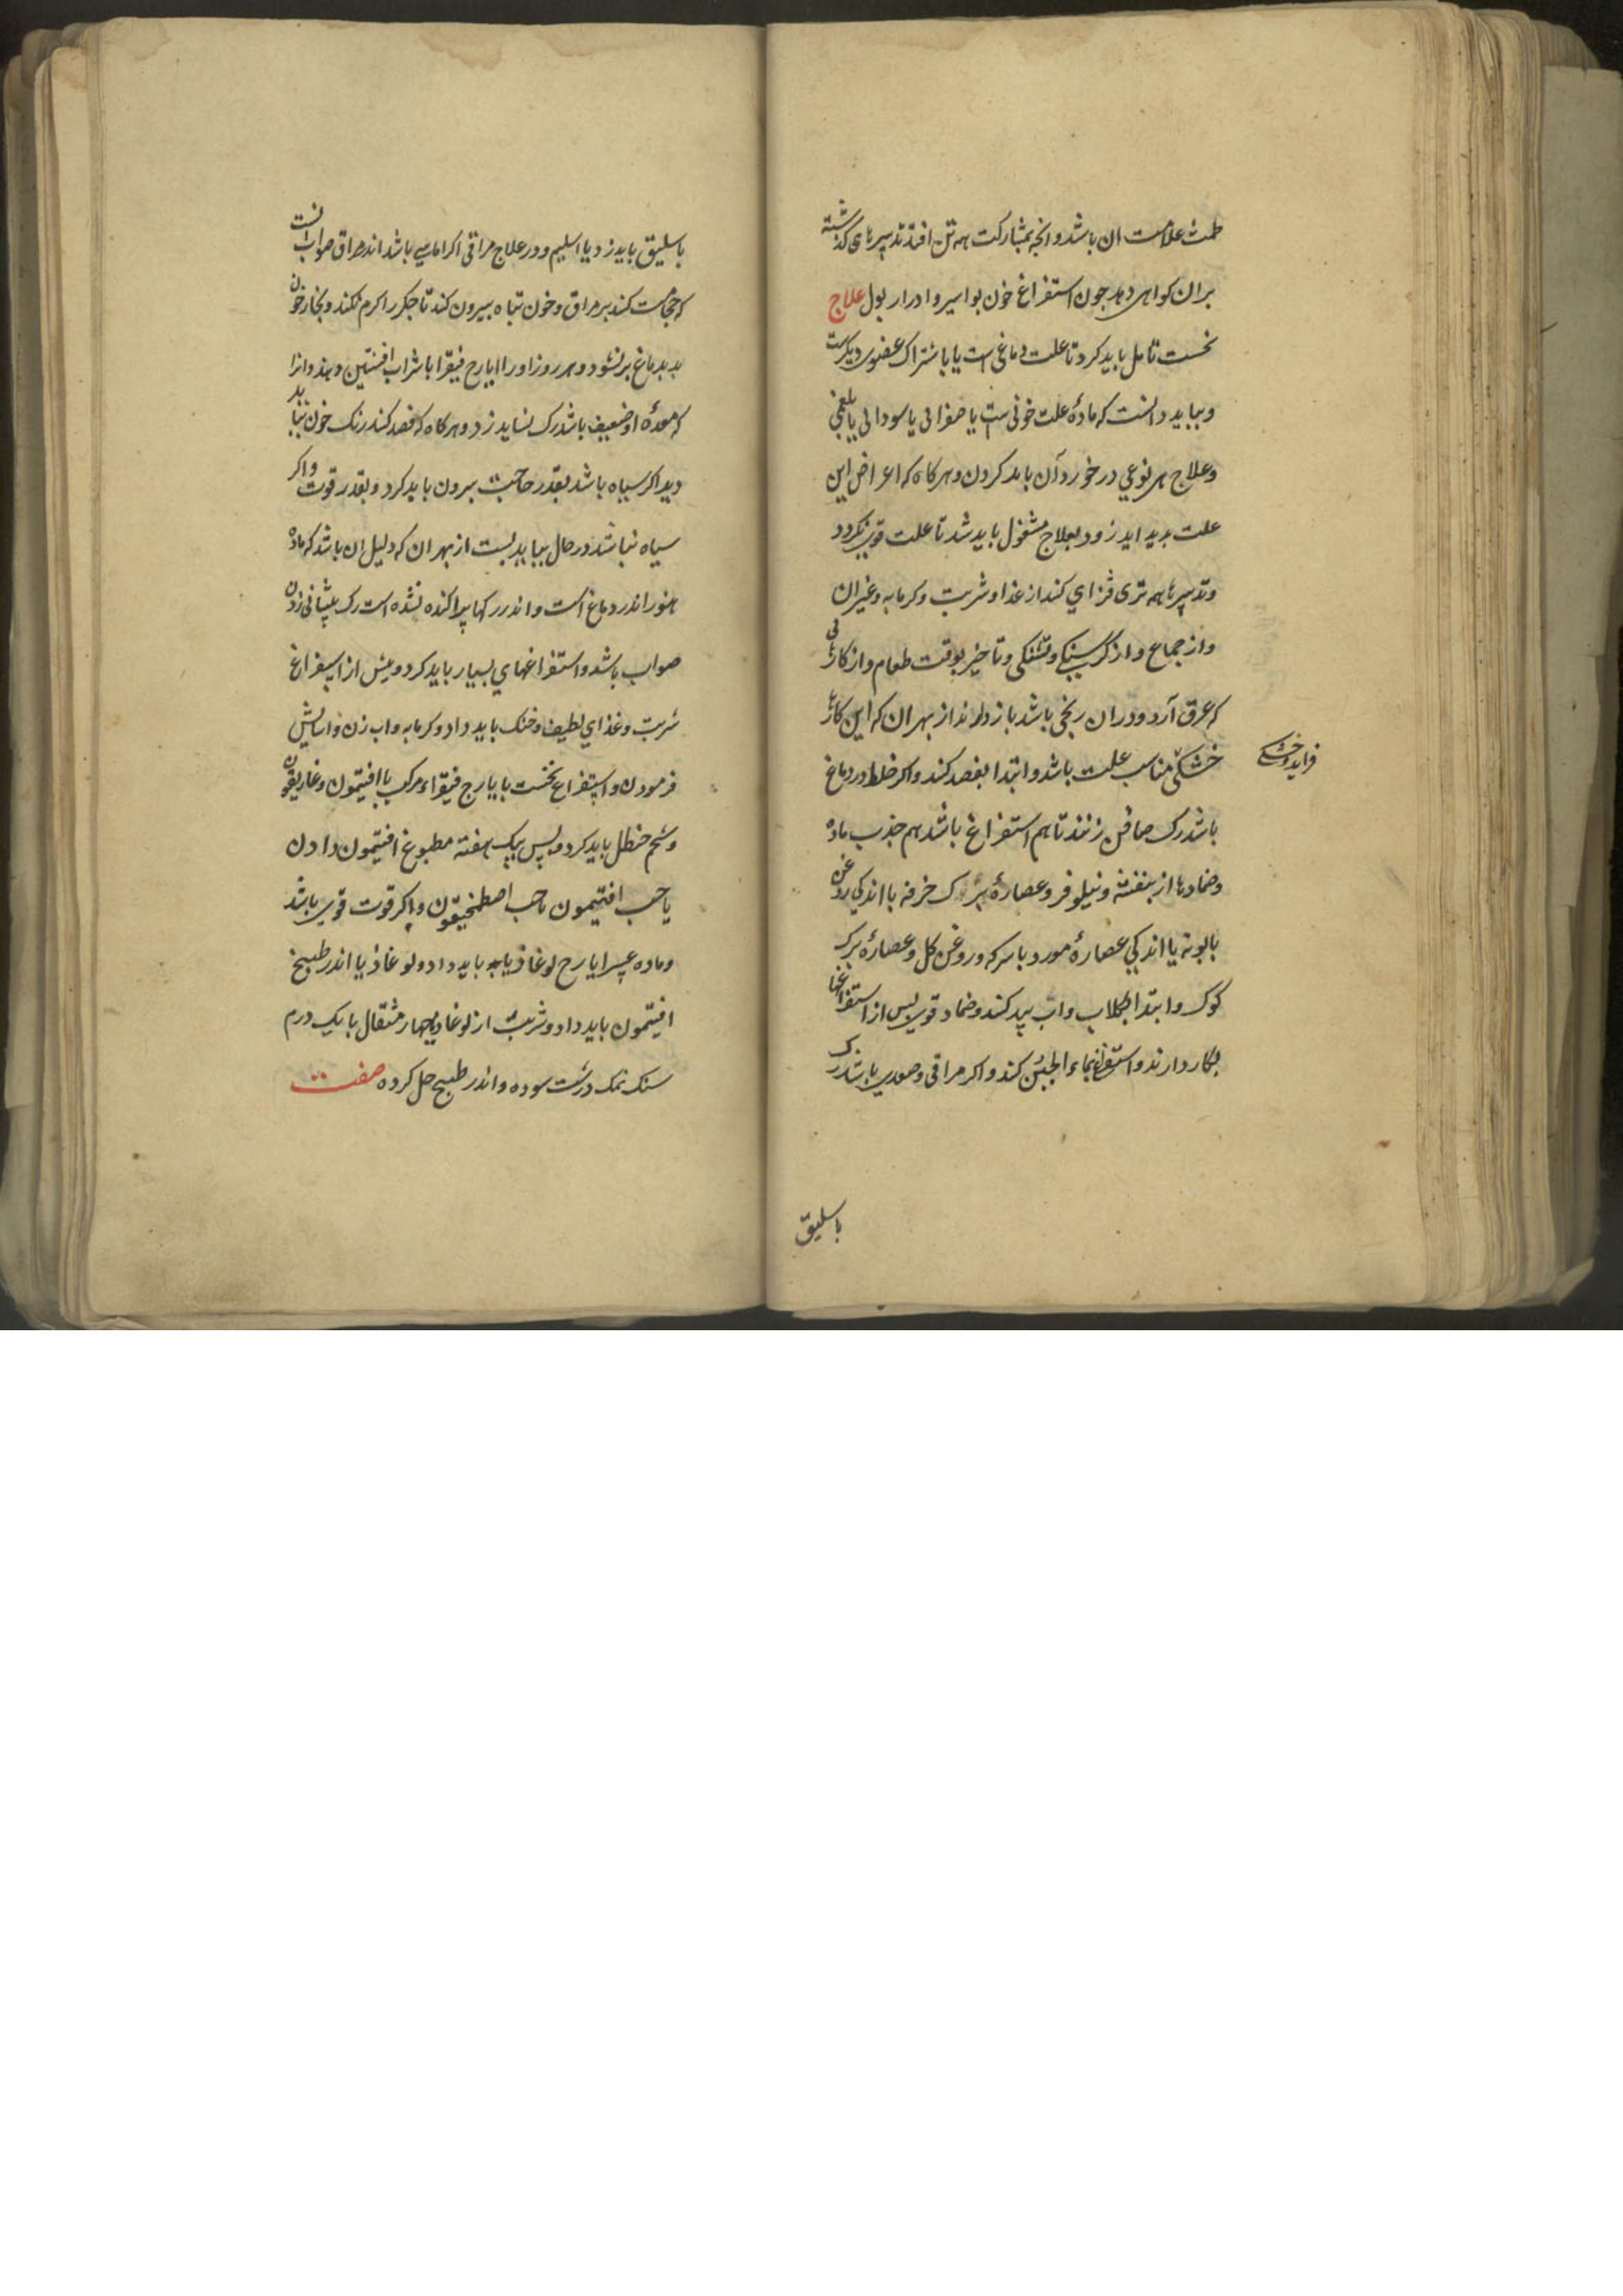 طمث علامت ان باشد و انچه بمشارکت همه تن افتد تدبیرهای گذشته
بران کواهی دهد جون استفراغ خون بواسیر و ادرار بول علاج
نخست تامل باید کرد تا علت دماغی است یا باشتراک عضوی دیکرست
و بباید دانست که مادهٔ علت خونی ست یا صفرائی یا سودائی یا بلغمی
و علاج هر نوعی در خورد آن باید کردن و هرکاه که اعراض این
علت بدید اید زود بعلاج مشغول باید شد تا علت قوی نکردد
و تدبیرها همه تری فزای کند از غذا و شربت و کرمابه و غیران
و از جماع و از کرسنکی و تشنکی و تاخیر بوقت طعام و از کارهائی
که عرق آرد و دران رنجی باشد باز دارند از بهر ان که این کارها
خشکی مناسب علت باشد و ابتدا بفصد کنند و اکر خلط در دماغ
فزاید و خشکی
باشد رک صافن زنند تا هم استفراغ باشد هم جذب ماده
و ضمادها از بنفشه و نیلوفر و عصارهٔ برک خرفه با اندکی روغن
بابونه یا اندکی عصارهٔ مورد با سرکه و روغن کل و عصارهٔ برک
کوک و ابتدا بکلاب و اب بید کنند و ضماد قوی پس از استفراغها
بکار دارند و استفراغ بماء الجبن کنند و اکر مراقی و معدی باشد رک
باسلیق
باسلیق باید زد یا اسلیم و در علاج مراقی اکر اماسی باشد اندر مراق صواب انست
که حجامت کنند بر مراق و خون تباه بیرون کند تا جکر را کرم نکند و بخار خون
بد بدماغ بر نشود و هر روز او را ایارج فیقرا با شراب افسنتین دهند و انرا
که معدهٔ او ضعیف باشد رک نشاید زد و هرکاه که فصد کنند رنک خون بباید
دید اکر سیاه باشد بقدر حاجت بیرون باید کرد و بقدر قوت و اکر
سیاه نباشد در حال بباید بست از بهر ان که دلیل ان باشد که ماده
هنوز اندر دماغ است و اندر رکها پراکنده نشده است رک پیشانی زدن
صواب باشد و استفراغهای بسیار باید کرد و پیش از استفراغ
شربت و غذای لطیف و خنک باید داد و کرمابه و اب زن و اسایش
فرمودن و استفراغ نخست بایارج فیقراء مرکب با افتیمون و غاریقون
و شحم حنظل باید کرد و پس بیک هفته مطبوخ افتیمون دادن
یا حب افتیمون یا حب اصطمخیقون و اکر قوت قوی باشد
و ماده عسر ایارج لوغاذیا باید داد و لوغاذیا اندر طبیخ
افتیمون باید داد و شربت از لوغاذیا چهار مثقال با یک درم
سنک نمک درشت سوده و اندر طبیخ حل کرده صفت